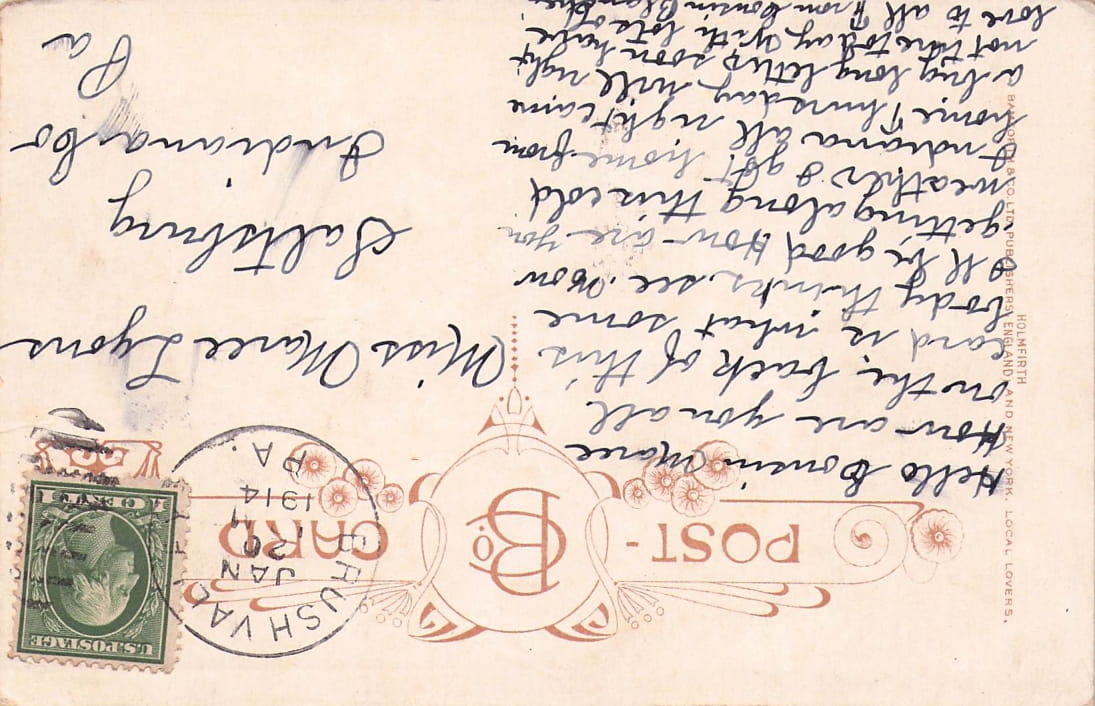 POST-CARD
B Co
BAMFORTH & CO. LTD. PUBLISHERS, ENGLAND AND NEW YORK. LOCAL LOVERS.
HOLMFIRTH
BRUSH VALLEY
JAN
20
1914
PA.
U.S. POSTAGE
1 CENT 1
Hello Cousin Maree
How are you all
on the back of this
card is what some
body thinks, see. now
I ll be good, How are you
getting along this cold
weather I got home from
Indiana all right came
home Thursday, will right
a big long letter soon have
not time to day, with lots of
love to all From Cousin
Miss Maree Lyons
Saltsburg
Indiana Co
Pa